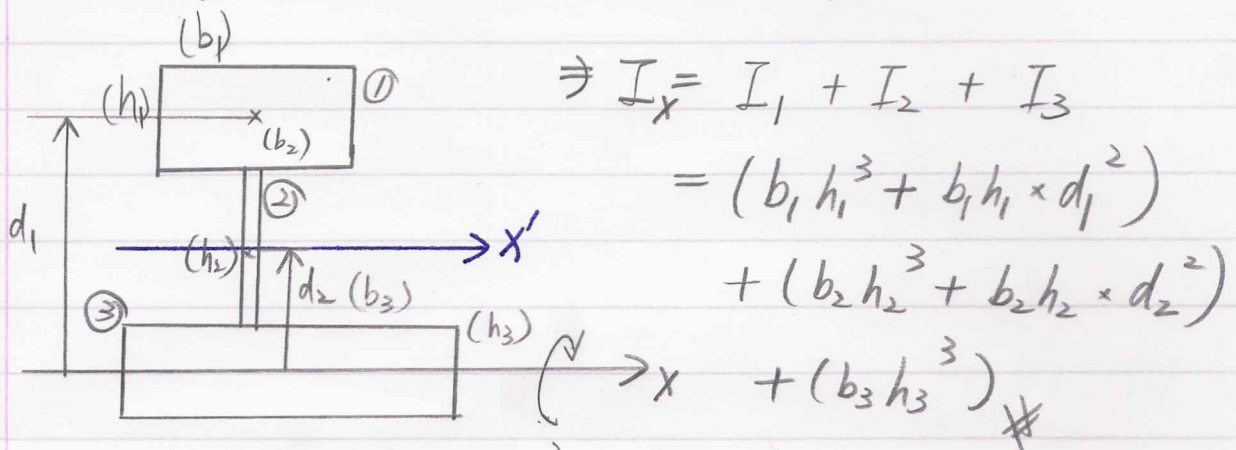 (b₁)
(h₁)
①
(b₂)
②
d₁
(h₂)
X'
d₂ (b₃)
③
(h₃)
X
⇒ Iₓ = I₁ + I₂ + I₃
= (b₁h₁³ + b₁h₁ × d₁²)
+ (b₂h₂³ + b₂h₂ × d₂²)
+ (b₃h₃³)